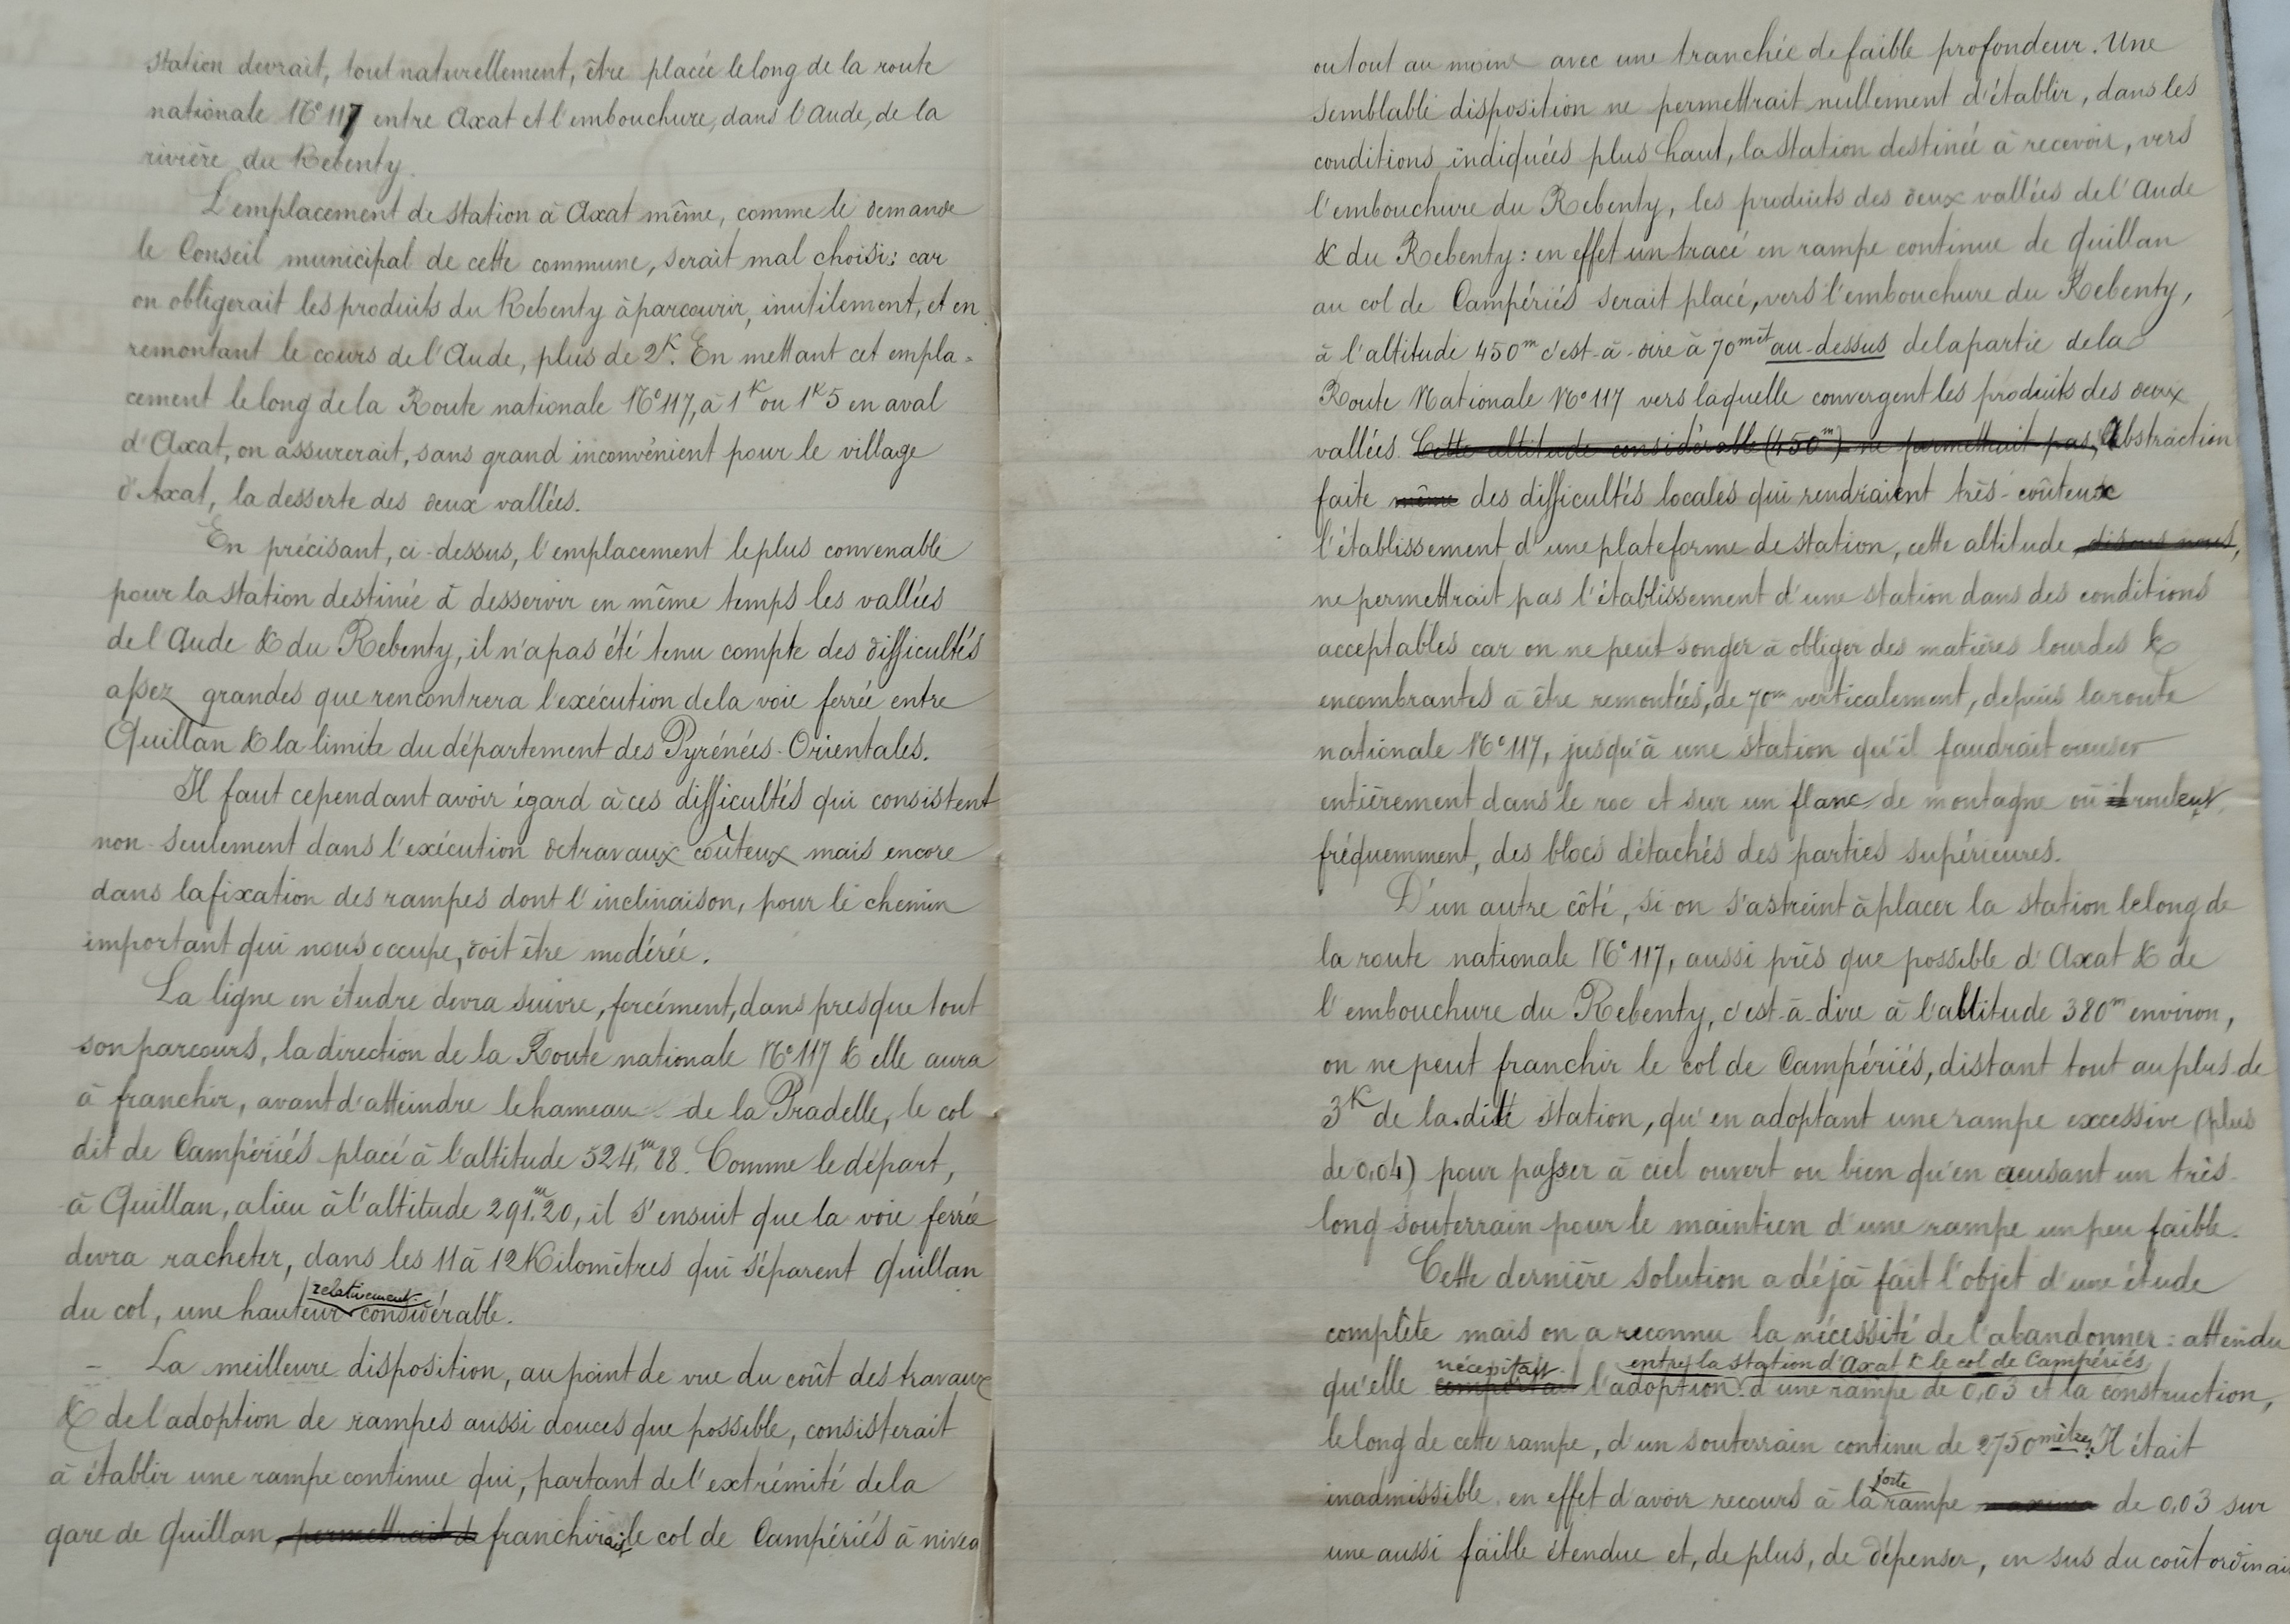 station devrait, tout naturellement, être placée le long de la route
nationale N° 117 entre Axat et l'embouchure, dans l'Aude, de la
rivière du Rebenty.
L'emplacement de station à Axat même, comme le demande
le Conseil municipal de cette commune, serait mal choisi: car
on obligerait les produits du Rebenty à parcourir, inutilement, et en
remontant le cours de l'Aude, plus de 2K. En mettant cet empla-
cement le long de la Route nationale N° 117, à 1K ou 1K5 en aval
d'Axat, on assurerait, sans grand inconvénient pour le village
d'Axat, la desserte des deux vallées.
En précisant, ci-dessus, l'emplacement le plus convenable
pour la station destinée à desservir en même temps les vallées
de l'Aude & du Rebenty, il n'a pas été tenu compte des difficultés
assez grandes que rencontrera l'exécution de la voie ferrée entre
Quillan & la limite du département des Pyrénées-Orientales.
Il faut cependant avoir égard à ces difficultés qui consistent
non-seulement dans l'exécution de travaux coûteux mais encore
dans la fixation des rampes dont l'inclinaison, pour le chemin
important qui nous occupe, doit être modérée.
La ligne en étudre devra suivre, forcément, dans presque tout
son parcours, la direction de la Route nationale N° 117 & elle aura
à franchir, avant d'atteindre le hameau de la Pradelle, le col
dit de Campériés placé à l'altitude 524,m88. Comme le départ,
à Quillan, a lieu à l'altitude 291.m20, il s'ensuit que la voie ferrée
devra racheter, dans les 11 à 12 Kilomètres qui séparent Quillan
du col, une hauteur relativement considérable.
- La meilleure disposition, au point de vue du coût des travaux
& de l'adoption de rampes aussi douces que possible, consisterait
à établir une rampe continue qui, partant de l'extrémité de la
gare de Quillan permettrait de franchirait le col de Campériés à nivea
ou tout au moins avec une tranchée de faible profondeur. Une
semblable disposition ne permettrait nullement d'établir, dans les
conditions indiquées plus haut, la station destinée à recevoir, vers
l'embouchure du Rebenty, les produits des deux vallées de l'Aude
& du Rebenty: en effet un tracé en rampe continue de Quillan
au col de Campériés serait placé, vers l'embouchure du Rebenty,
à l'altitude 450m c'est-à-dire à 70mèt au-dessus de la partie de la
Route Nationale N° 117 vers laquelle convergent les produits des deux
vallées. Cette altitude considérable (450m) ne permettrait pas, Abstraction
faite même des difficultés locales qui rendraient très-coûteux
l'établissement d'une plateforme de station, cette altitude, disons nous,
ne permettrait pas l'établissement d'une station dans des conditions
acceptables car on ne peut songer à obliger des matières lourdes &
encombrantes à être remontées, de 70m verticalement, depuis la route
nationale N° 117, jusqu'à une station qu'il faudrait creuser
entièrement dans le roc et sur un flanc de montagne où il roulent,
fréquemment, des blocs détachés des parties supérieures.
D'un autre côté, si on s'astreint à placer la station le long de
la route nationale N° 117, aussi près que possible d'Axat & de
l'embouchure du Rebenty, c'est-à-dire à l'altitude 380m environ,
on ne peut franchir le col de Campériés, distant tout au plus de
3K de la dite station, qu'en adoptant une rampe excessive (plus
de 0,04) pour passer à ciel ouvert ou bien qu'en creusant un très-
long souterrain pour le maintien d'une rampe un peu faible.
Cette dernière solution a déjà fait l'objet d'une étude
complète mais on a reconnu la nécessité de l'abandonner: attendu
nécessitait entre la station d'Axat & le col de Campériés
qu'elle comportait l'adoption d'une rampe de 0,03 et la construction,
le long de cette rampe, d'un souterrain continu de 2750 mètres. Il était
inadmissible en effet d'avoir recours à la forte rampe maxima de 0,03 sur
une aussi faible étendue et, de plus, de dépenser, en sus du coût ordinai